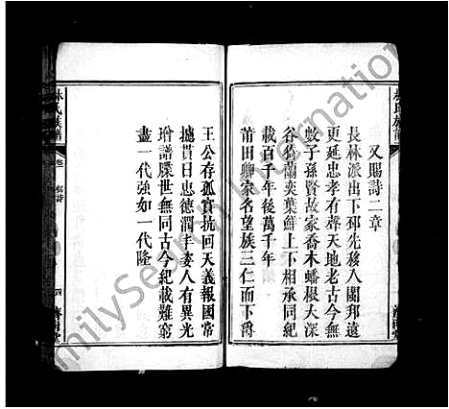 林氏族譜
又賜詩二章
長林派出下邳先移入閩邦遠
更延忠孝有聲天地老古今無
數子孫賢故家喬木蟠根大深
谷猗蘭奕葉鮮上下相承同紀
載百千年後萬千年
莆田卿家名望族三仁而下爵
王公存孤實抗回天義報國常
攄貫日忠德潤丰姿人有異光
增譜牒世無同古今紀載難窮
盡一代強如一代隆
林氏族譜
FamilySearch International